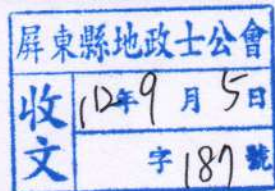 屏東縣地政士公會
收文
112年9月5日
字187號